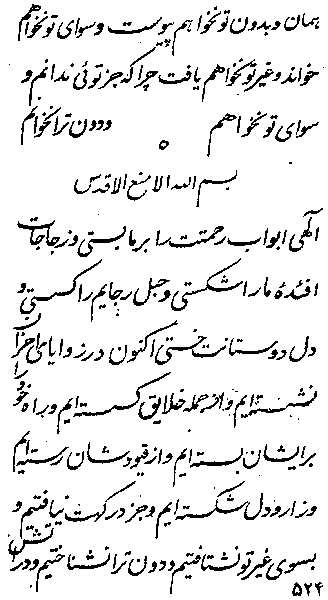 همان و بدون تو نخواهم پیوست و سوای تو نخواهم
خواند و غیر تو نخواهم یافت چرا که جز توئی ندانم و
سوای تو نخواهم ودون ترا نخوانم
بسم الله الامنع الاقدس
آلهی ابواب رحمتت را بر ما بستی و زجاجات
افئدهٔ ما را شکستی و حبل رجایم را گسستی و
دل دوستانت خستی اکنون در زوایای احزان
نشسته‌ایم و از جمله خلایق گسسته‌ایم و راه خود را
بر ایشان بسته‌ایم و از قیودشان رسته‌ایم
و زار و دل شکسته‌ایم و جز درگهت نیافتیم و
بسوی غیر تو نشتافتیم و دون ترا نشناختیم و در آتش
۵۲۴